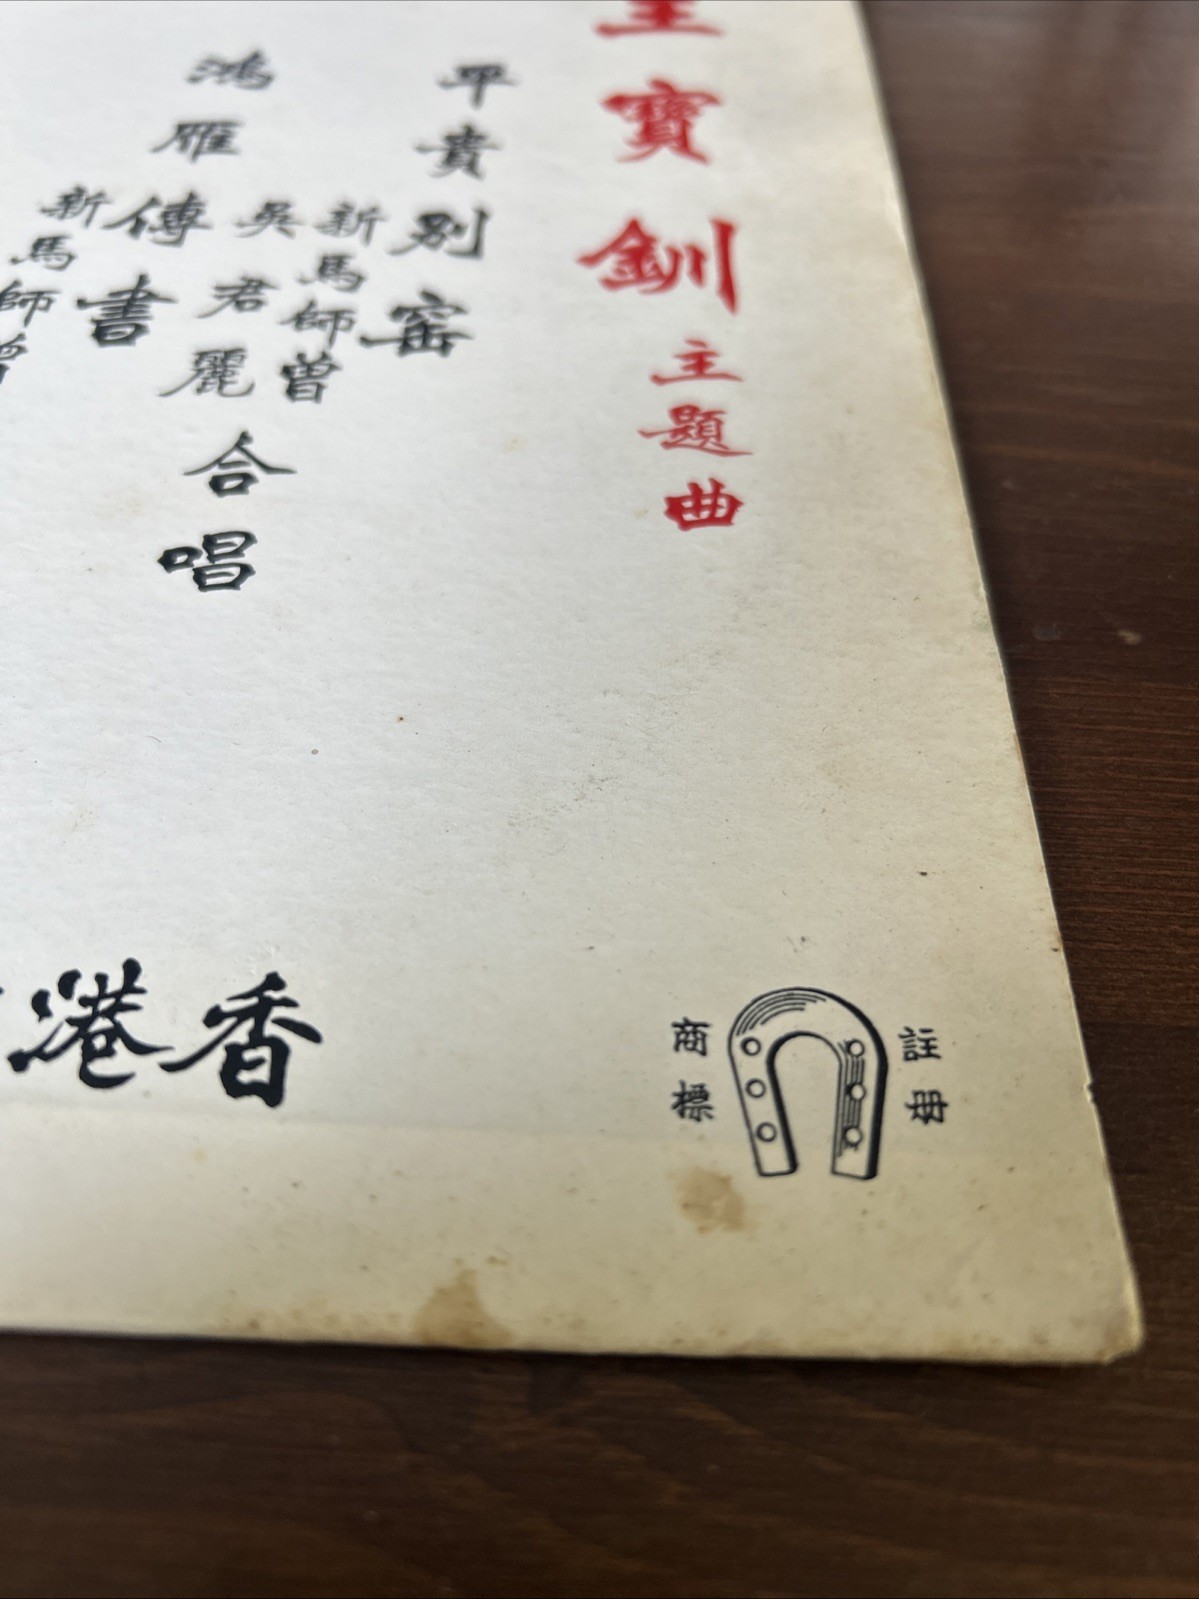 王寶釧主題曲
平貴別窑
新馬師曾
吳君麗
合唱
鴻雁傳書
新馬師曾
香港
註冊
商標